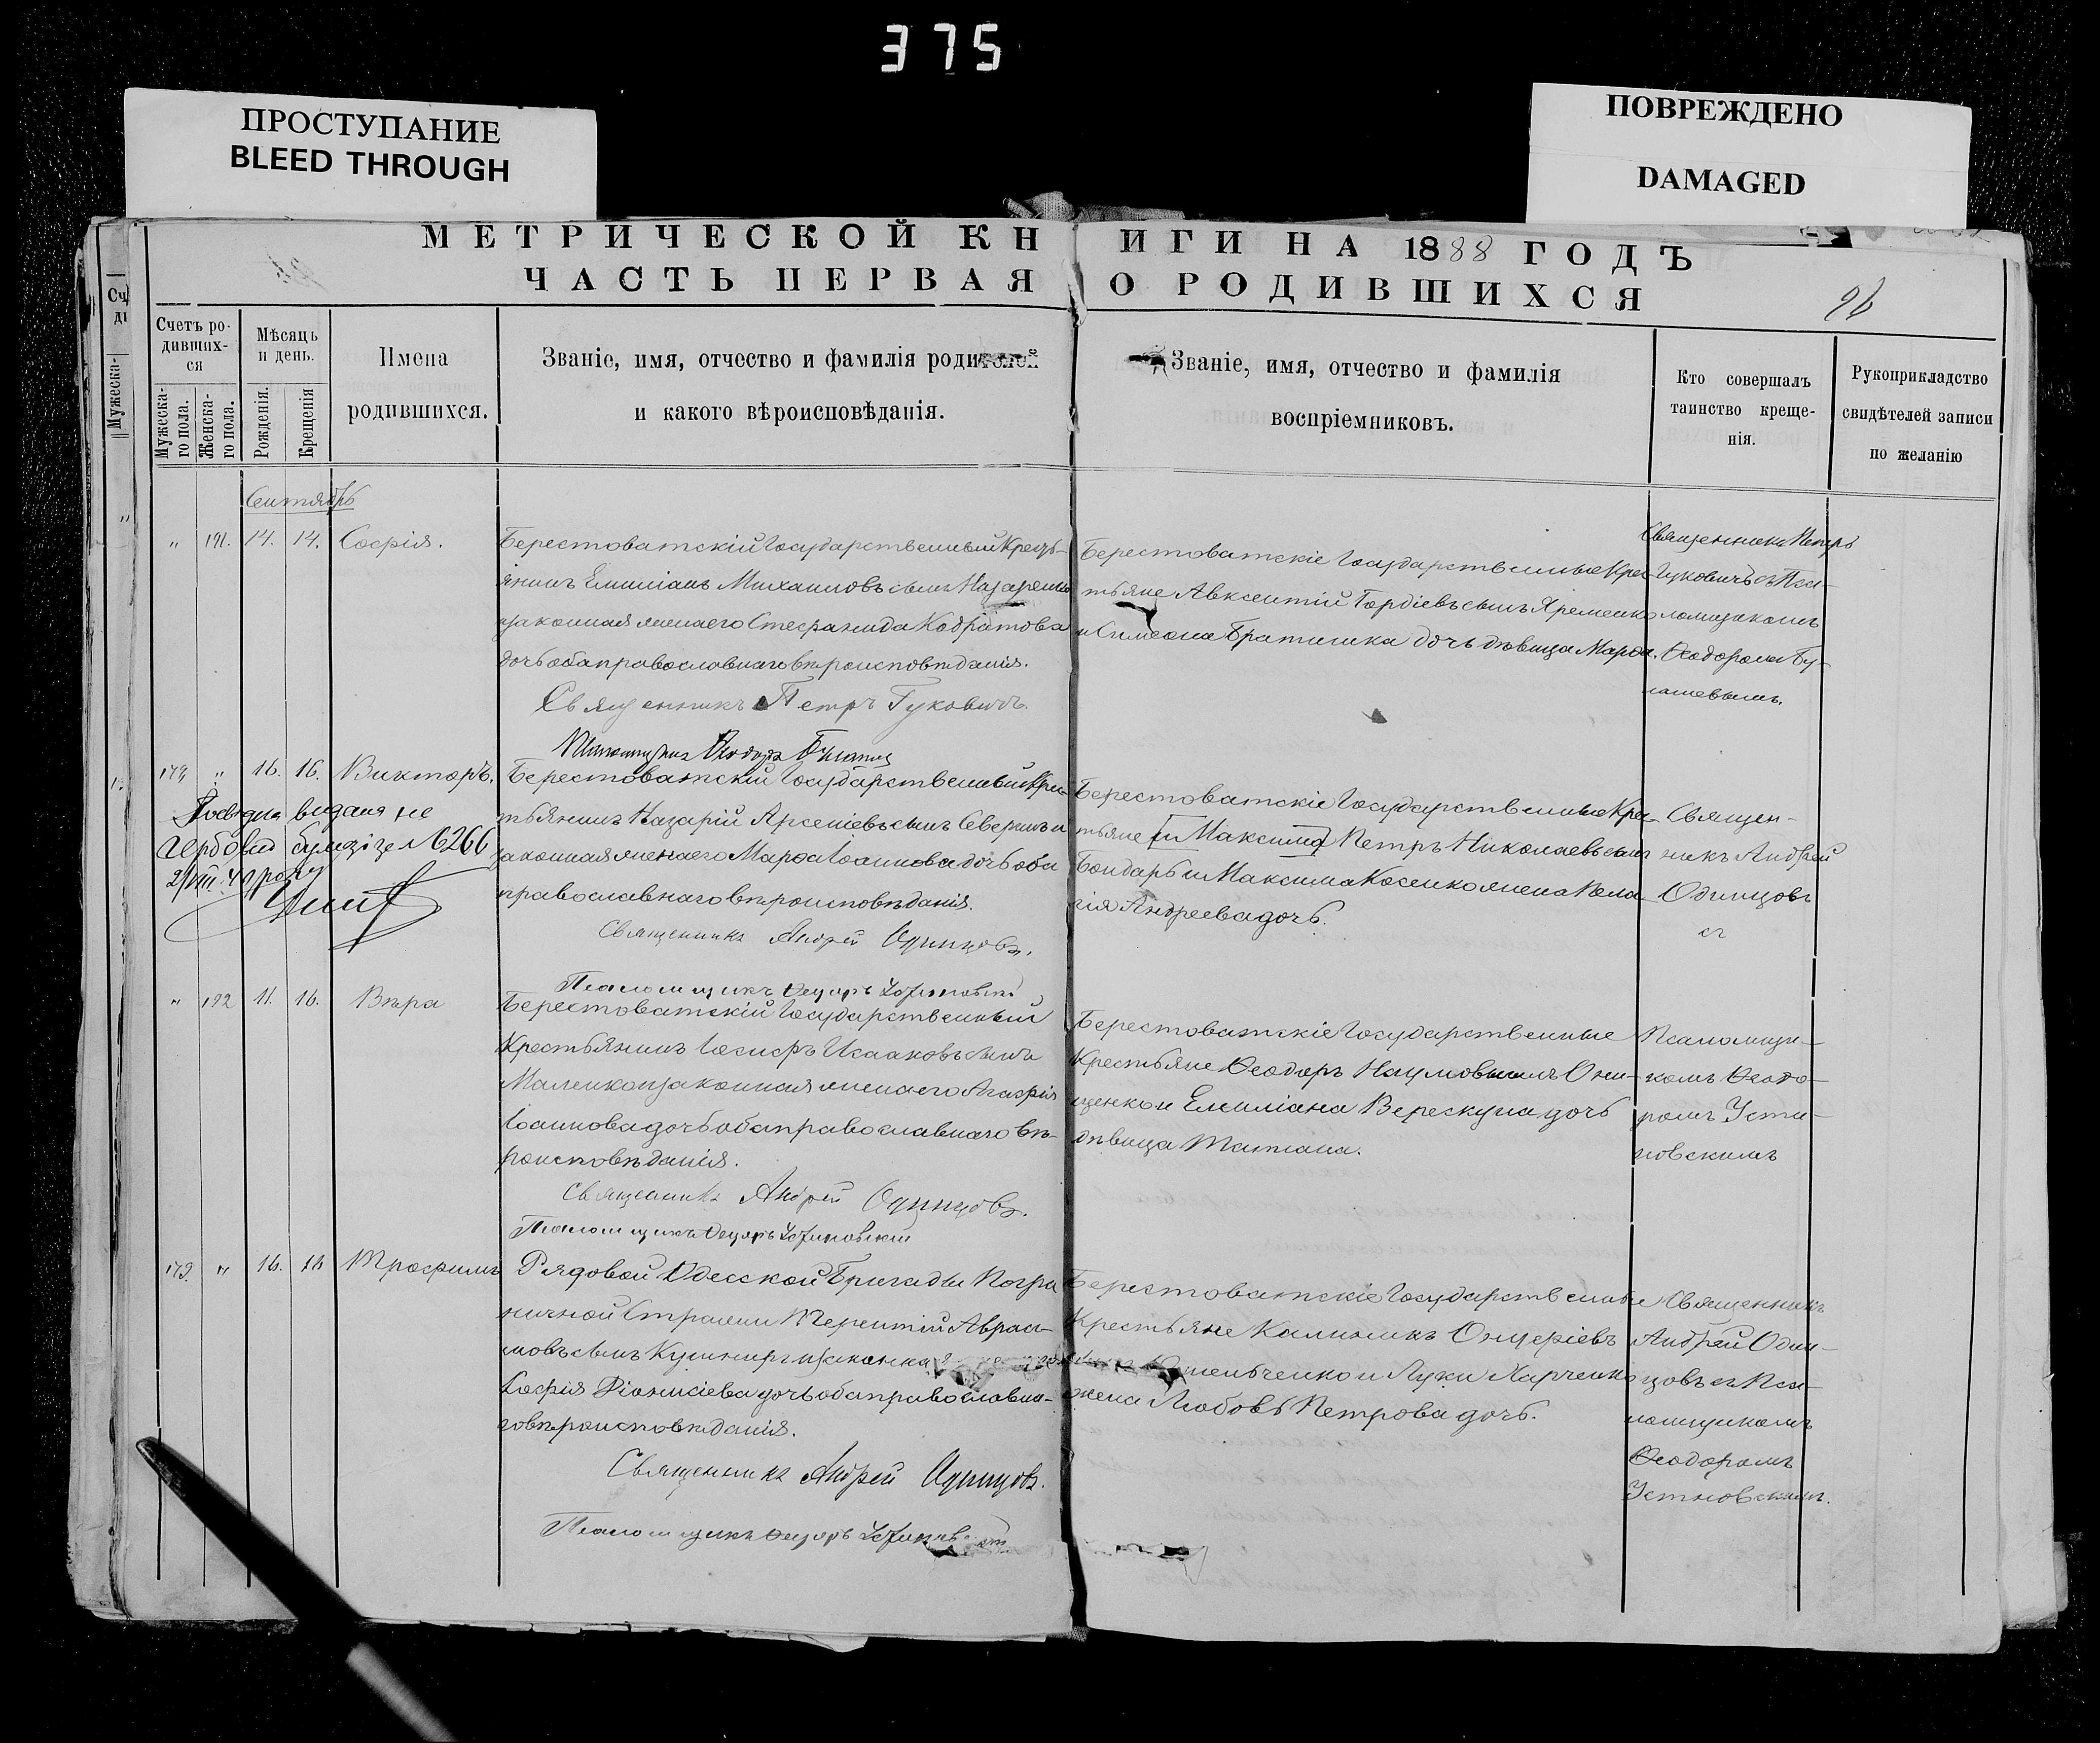 375
ПРОСТУПАНИЕ
BLEED THROUGH
ПОВРЕЖДЕНО
DAMAGED
МЕТРИЧЕСКОЙ КНИГИ НА 1888 ГОДЪ
ЧАСТЬ ПЕРВАЯ О РОДИВШИХСЯ
Счетъ ро-
дивших-
ся
Мужеска-
го пола.
Женска-
го пола.
Мѣсяцъ
и день.
Рожденія.
Крещенія
Имена
родившихся.
Званіе, имя, отчество и фамилія родителей
и какого вѣроисповѣданія.
Званіе, имя, отчество и фамилія
воспріемниковъ.
Кто совершалъ
таинство креще-
нія.
Рукоприкладство
свидѣтелей записи
по желанію
Сентябрь
„ 191. 14. 14. Софія.
Берестоватскій Государственный Кресть-
янинъ Емиліанъ Михаиловъ сынъ Назаренко
и законная жена его Стефанида Кодратова
дочь оба православнаго вѣроисповѣданія.
Священникъ Петръ Гуковичъ.
Берестоватскіе Государственные Крес-
тьяне Авксентій Гордіевъ сынъ Яременко
и Симеона Братишка дочь дѣвица Марѳа.
Священникъ Петръ
Гуковичъ съ Пса-
ломщикомъ
Ѳеодоромъ Бу-
„ 16. 16. Викторъ.
Берестоватскій Государственный Крес-
тьянинъ Назарій Арсеніевъ сынъ Северинъ и
законная жена его Марѳа Іоаннова дочь оба
православнаго вѣроисповѣданія.
Священникъ Андрей Одинцовъ.
Псаломщикъ
Берестоватскіе Государственные Крес-
тьяне [и Максима] Петръ Николаевъ сынъ
Бондарь и Максима Косенко жена Пела-
гія Андреева дочь.
Священ-
никъ Андрей
Одинцовъ
съ
видана на
гербовій бумазі за №6266
„ 192 11. 16. Вѣра
Берестоватскій Государственный
Крестьянинъ Іосифъ Исааковъ сынъ
Маленко и законная жена его Агафія
Іоаннова дочь оба православнаго вѣ-
роисповѣданія.
Священникъ Андрей Одинцовъ.
Псаломщикъ Ѳедоръ Устиновскій
Берестоватскіе Государственные
Крестьяне Ѳеодоръ Наумовъ сынъ Они-
щенко и Емиліана Верескуна дочь
дѣвица Татіана.
Псаломщи-
комъ Ѳеодо-
ромъ Усти-
новскимъ
„ 16. 16 Трофимъ
Рядовой Одесской Бригады Погра-
ничной Стражи Терентій Авраа-
мовъ сынъ Кушниръ и законная
Софія Діонисіева дочь оба православна-
го вѣроисповѣданія.
Священникъ Андрей Одинцовъ.
Псаломщикъ Ѳедоръ
Берестоватскіе Государственные
Крестьяне Калиникъ Онуфріевъ
и Луки Харченко
жена Любовь Петрова дочь.
Священникъ
Андрей Один-
цовъ съ Пса-
ломщикомъ
Ѳеодоромъ
Устиновскимъ.